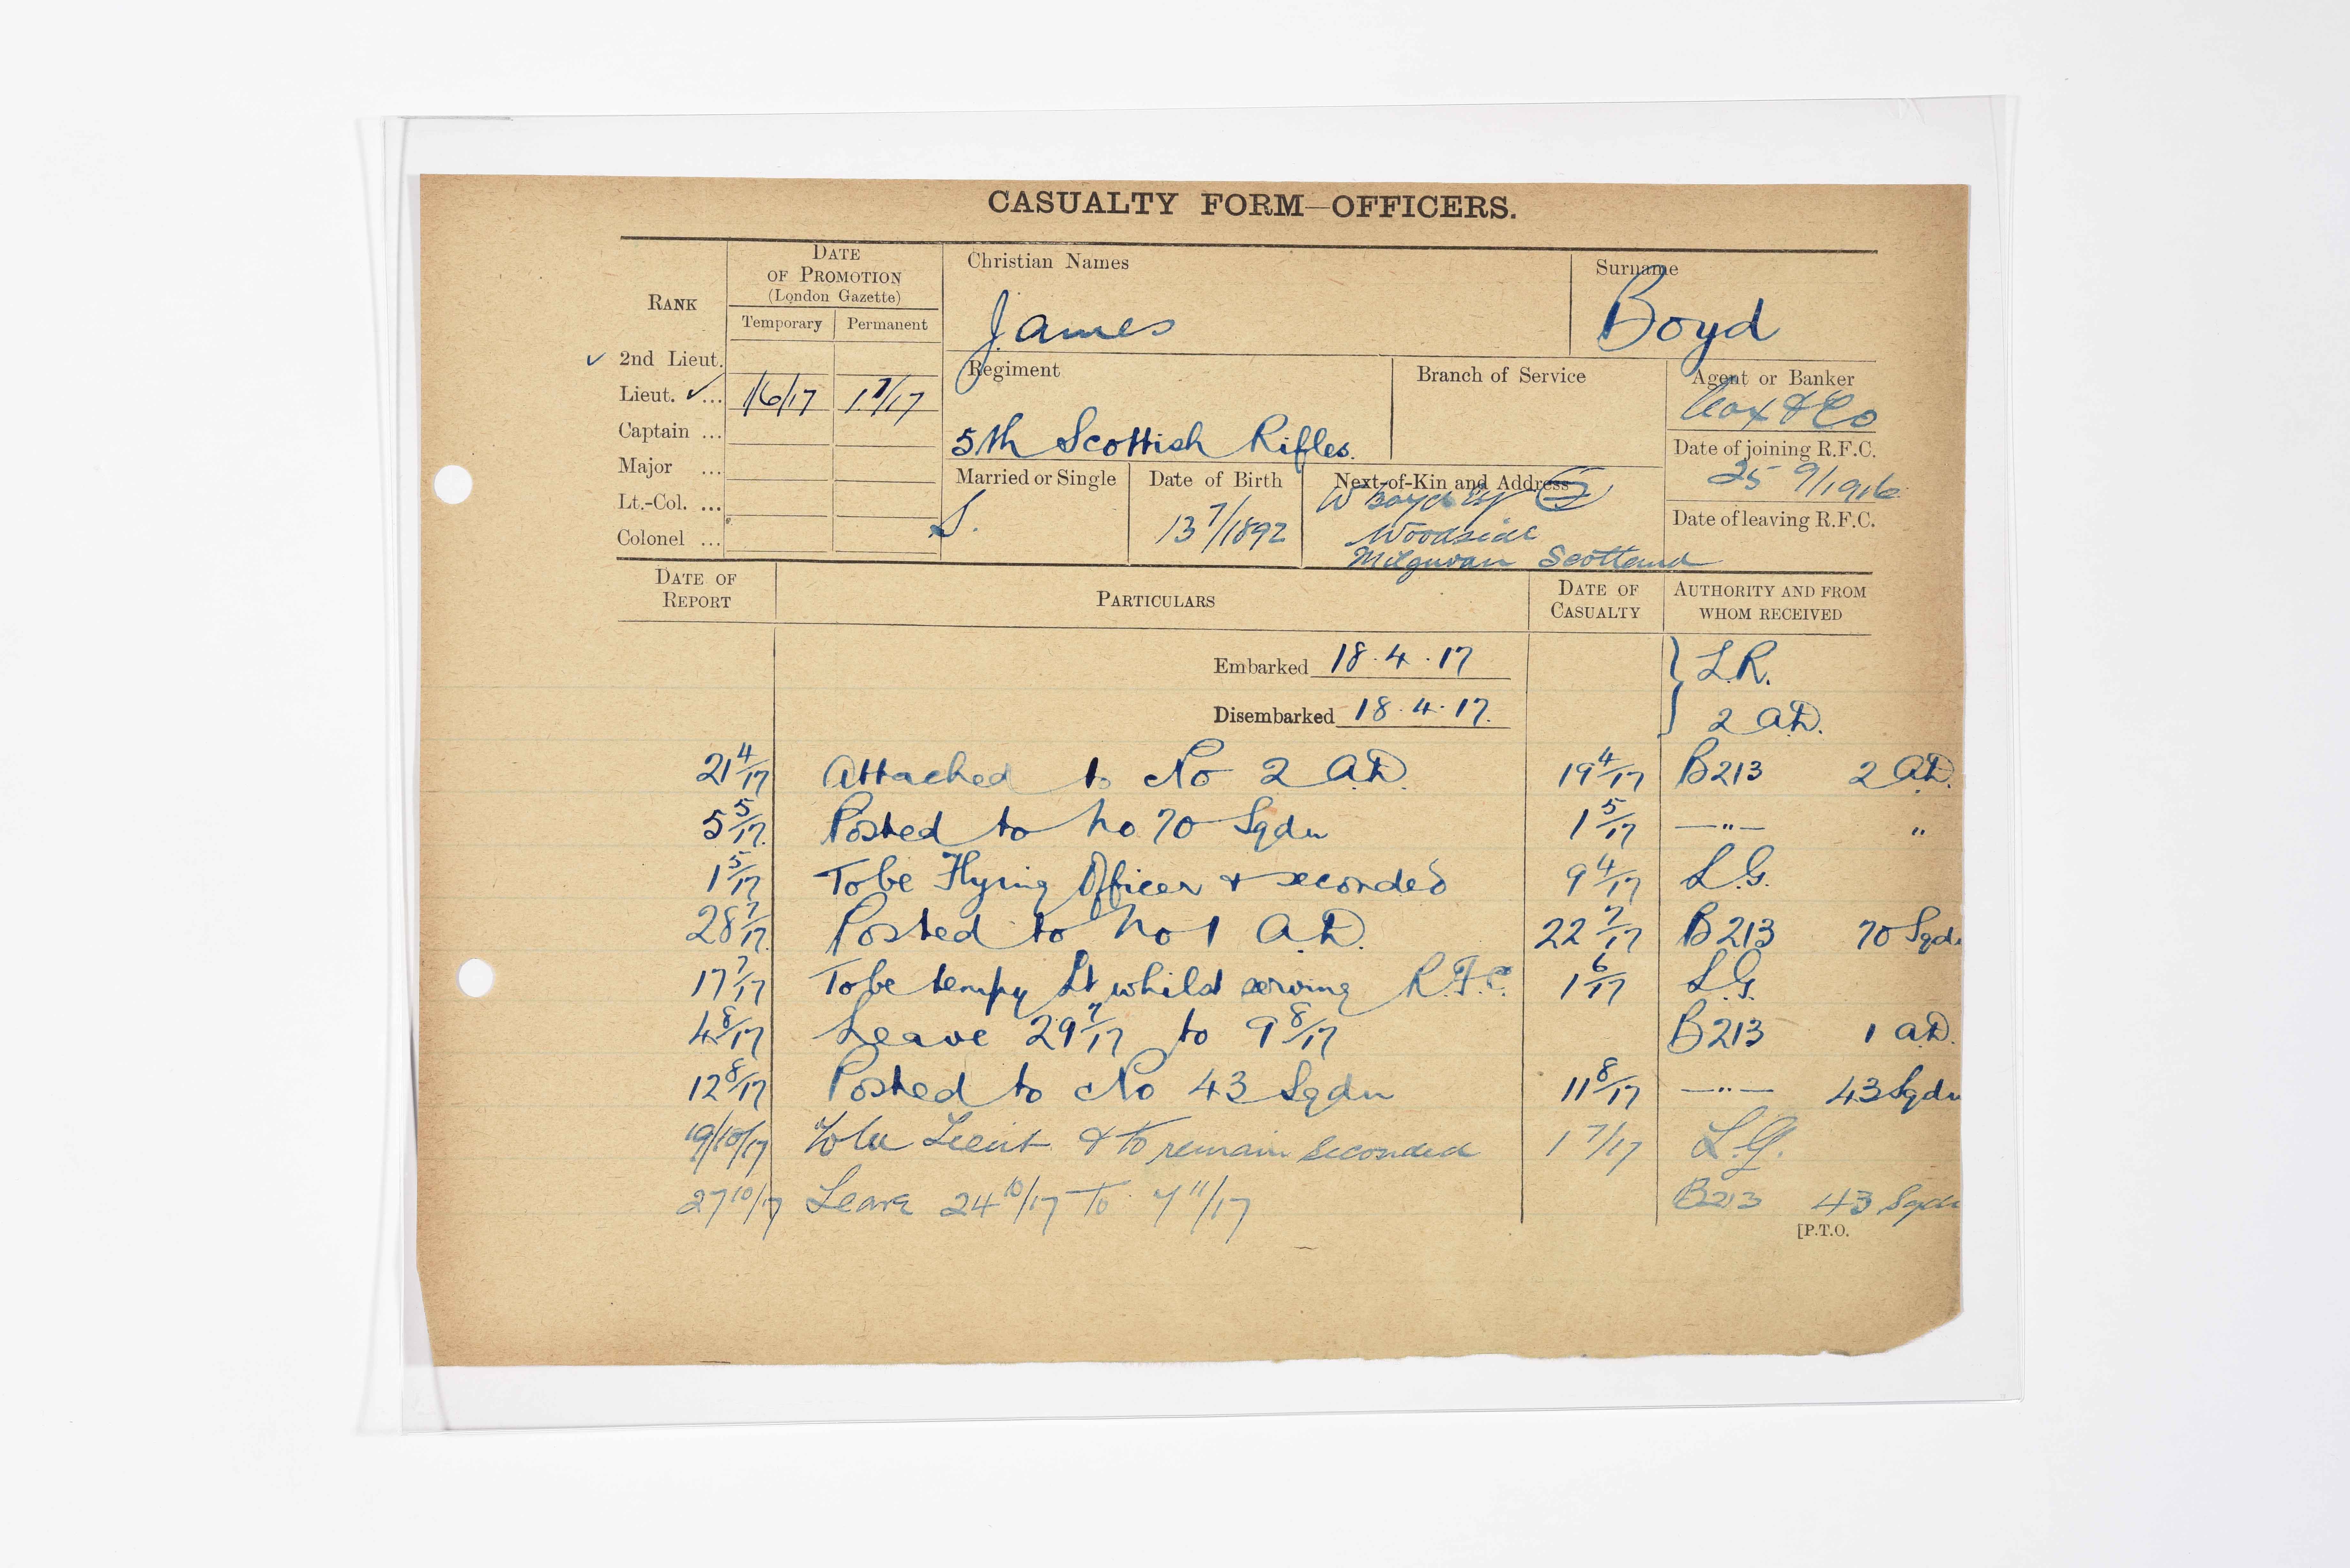 CASUALTY FORM—OFFICERS.
RANK
DATE OF PROMOTION (London Gazette)
Temporary Permanent
Christian Names
James
Surname
Boyd
✓ 2nd Lieut.
Lieut. ✓ ... 1/6/17 1 7/17
Captain ...
Major ...
Lt.-Col. ...
Colonel ...
Regiment
5th Scottish Rifles.
Branch of Service
Agent or Banker
Cox & Co
Date of joining R.F.C.
25 9/1916
Date of leaving R.F.C.
Married or Single
S.
Date of Birth
13 7/1892
Next-of-Kin and Address
W Boyd Esq
Woodside
Milguvan Scotland
DATE OF REPORT
PARTICULARS
DATE OF CASUALTY
AUTHORITY AND FROM WHOM RECEIVED
Embarked 18.4.17 } L.R.
Disembarked 18.4.17. 2 A.D.
21 4/17 Attached to No 2 A.D. 19 4/17 B213 2 A.D.
5 5/17 Posted to No 70 Sqdn 1 5/17 —"— "
1 5/17 To be Flying Officer & seconded 9 4/17 L.G.
28 7/17 Posted to No 1 A.D. 22 7/17 B213 70 Sqdn
17 7/17 To be tempy Lt whilst serving R.F.C. 1 6/17 L.G.
4 8/17 Leave 29 7/17 to 9 8/17 B213 1 A.D.
12 8/17 Posted to No 43 Sqdn 11 8/17 —"— 43 Sqdn
19/10/17 To be Lieut & to remain seconded 1 7/17 L.G.
27 10/17 Leave 24 10/17 To 7 11/17 B213 43 Sqdn
[P.T.O.